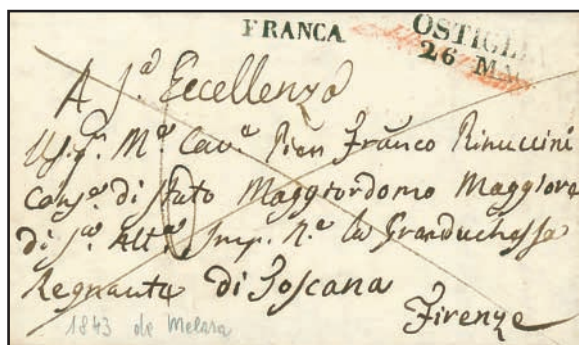 FRANCA
OSTIGLIA
26 MAG
A S.ª Eccellenza
Il Sig.r M.se Cav.e Pier Franco Rinuccini
Cons.re di Stato Maggiordomo Maggiore
di S.ª Alt.ª Imp. R.e la Granduchessa
Regnante di Toscana
Firenze
1843 de Melara